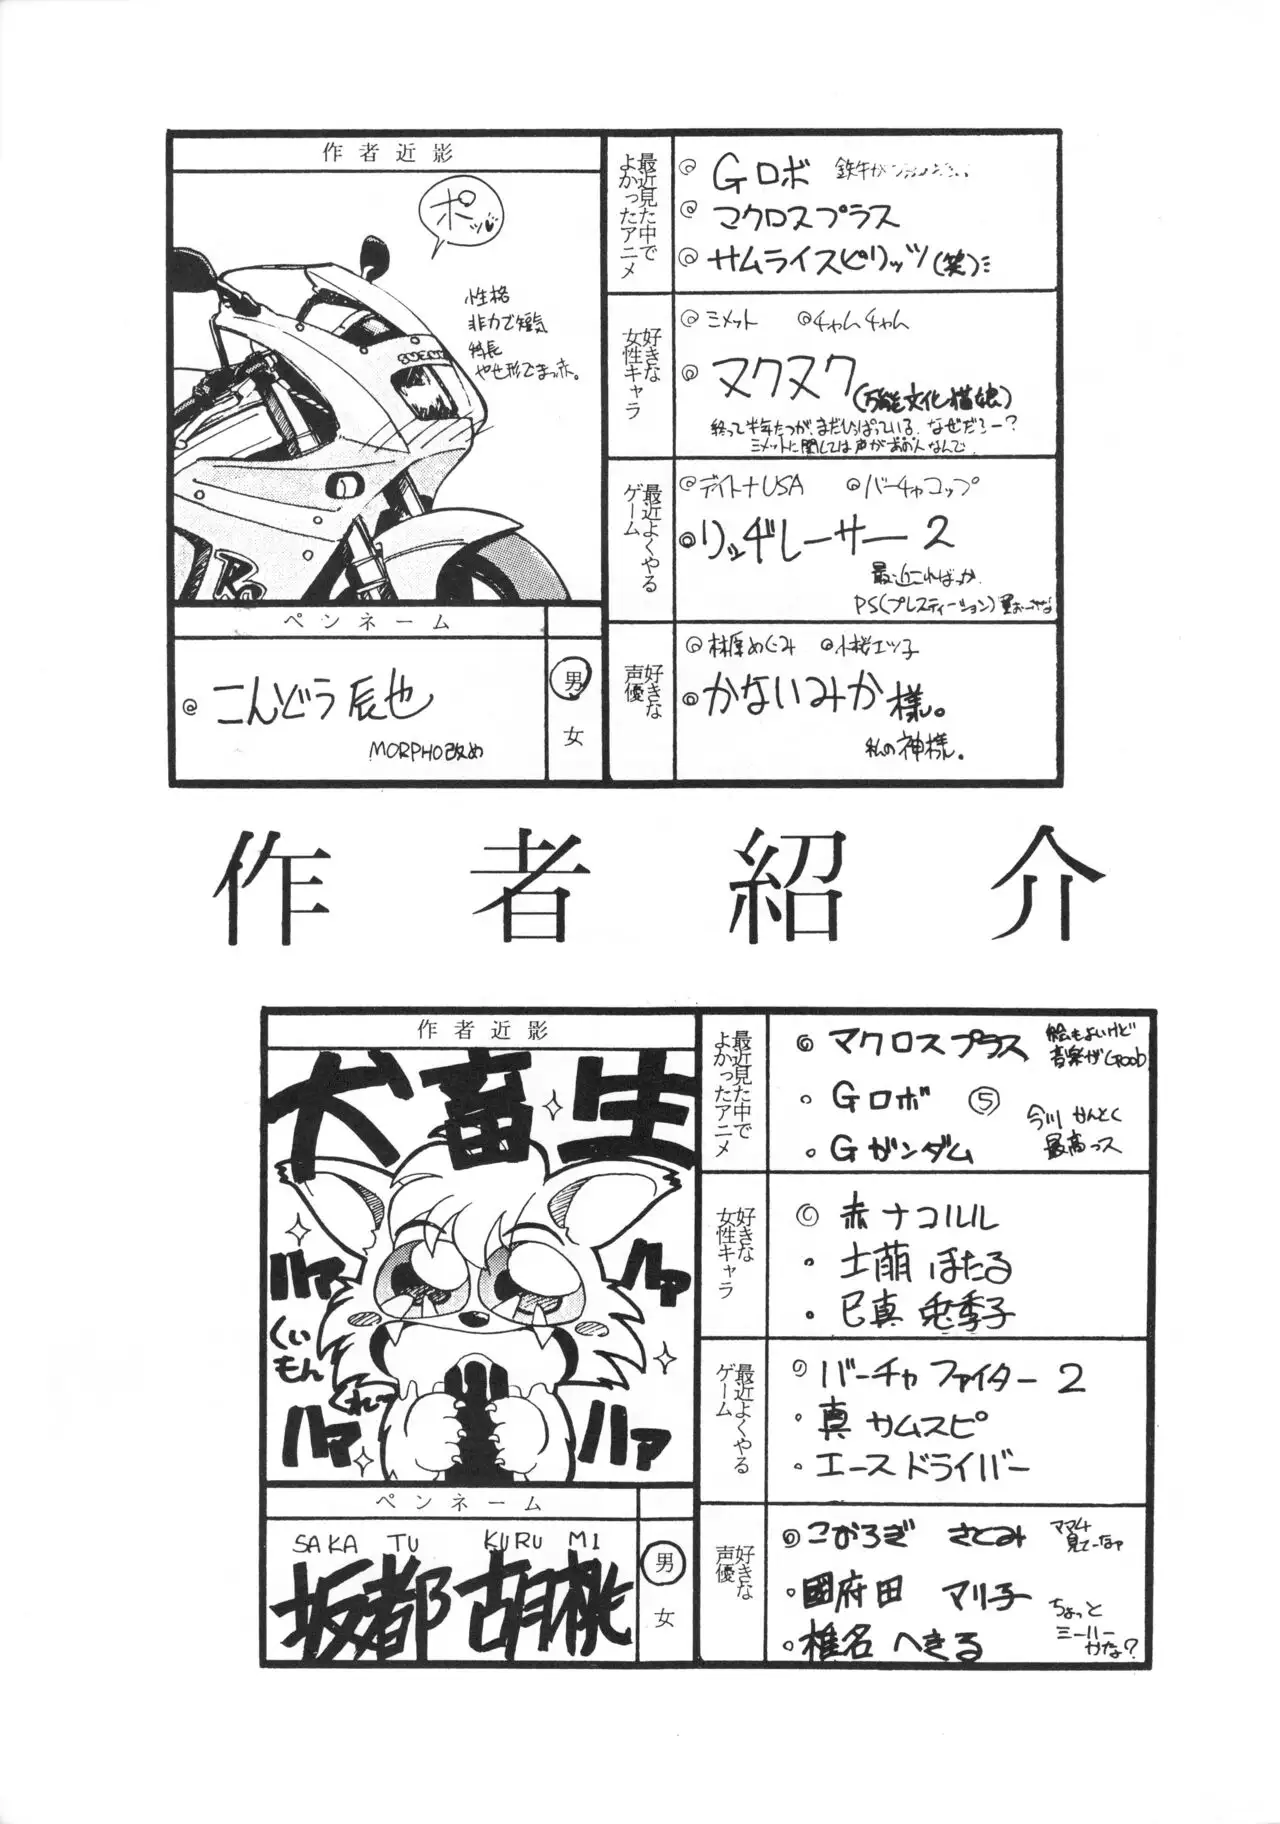 作者近影
ポッ
性格
非力で短気
特長
やせ形でまっ赤。
ペンネーム
◎こんどう辰也
MORPHO改め
男
女
最近見た中で
よかったアニメ
◎Gロボ
◎マクロスプラス
◎サムライスピリッツ(笑)
好きな
女性キャラ
◎ミメット ◎チャムチャム
◎ヌクヌク(万能文化猫娘)
終って半年たつがまだひっぱっている。なぜだろー?
ミメットに関しては声があの人なんで。
最近よくやる
ゲーム
◎デイトナUSA ◎バーチャコップ
◎リッヂレーサー2
最近こればっか
PS(プレスティーション)
好きな
声優
◎林原めぐみ ◎小桜エツ子
◎かないみか様。
私の神様。
作者紹介
作者近影
犬畜生
ハァ
ハァ
くいもん
くれっ
ハァ
ハァ
ペンネーム
SAKA TU KURU MI
坂都 胡桃
男
女
最近見た中で
よかったアニメ
◎マクロスプラス 絵もよいけど
音楽がGood
・Gロボ ⑤
・Gガンダム 今川かんとく
最高っス
好きな
女性キャラ
◎赤ナコルル
・土萌ほたる
・巳真兎季子
最近よくやる
ゲーム
◎バーチャファイター2
・真サムスピ
・エースドライバー
好きな
声優
◎こおろぎさとみ ママム4
見てーなァ
・國府田マリ子
・椎名へきる ちょっと
ミーハー
かな?